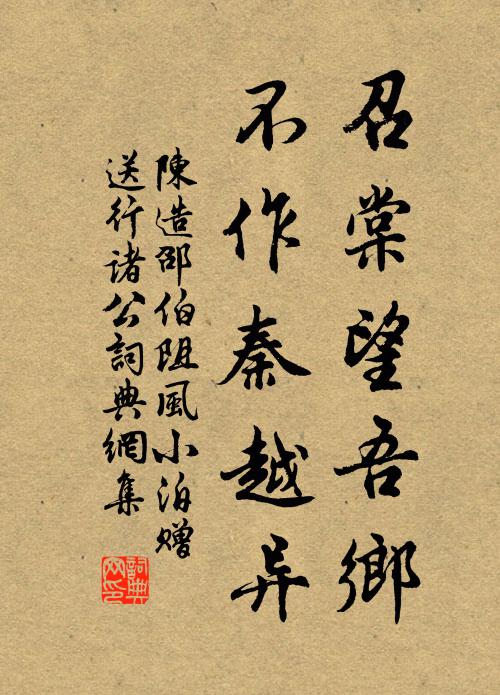 召棠望吾鄉
不作秦越异
陳造邵伯阻風小泊贈
送行诸公詞典網集
詞典
网印